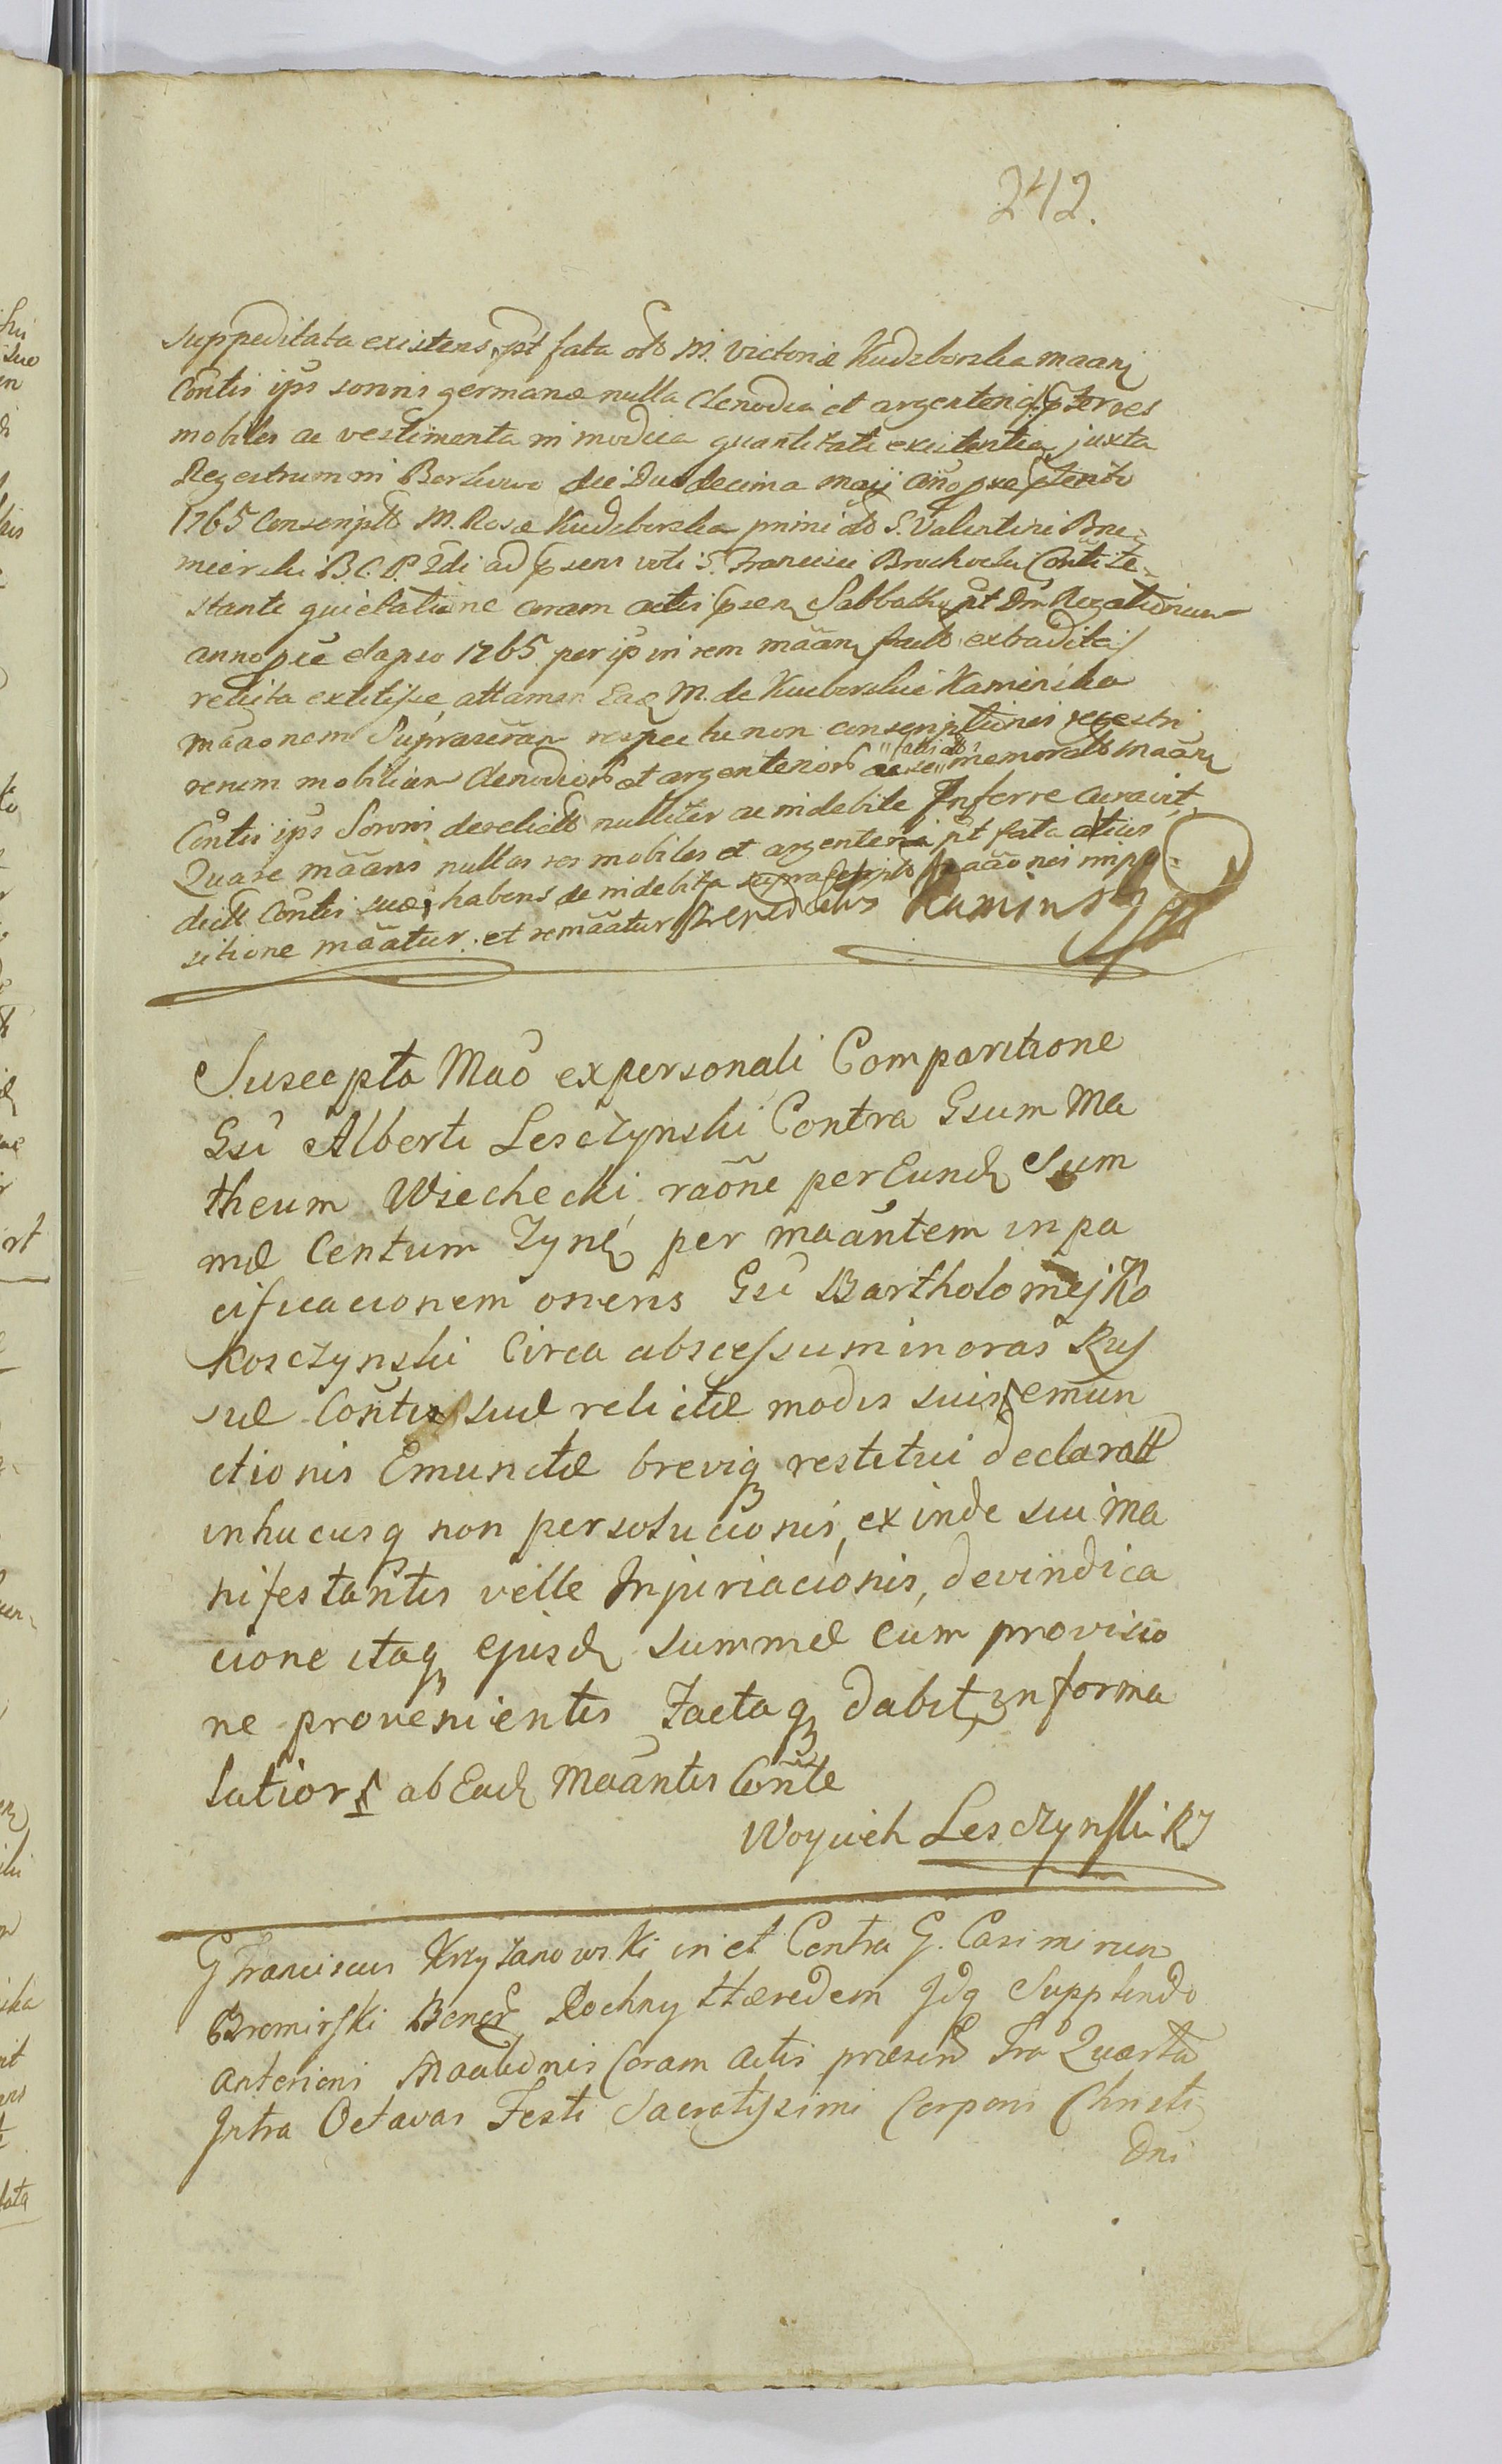 242.
suppeditata existens, pt fata olb M. Victoriæ Kudzborska maan
Contis ips sororis germanæ nulla Clenodia et argenteria pter res
mobiles ac vestimenta in modica quantitate existentia, juxta
Regestrum in Borkowo die Duodecima maij año præ
1765 Conscriptt M. Rosæ Kudzborska primi S. Valentini Bre
mierski B. C. P. 2di ad psens voti S. Francisci Brochocki Conti te
stante quietatione coram actis psen Sabbatho pt Dm Rogationum
anno pce elapso 1765 per ip in rem maan facto extradita
relicta extitisse, attamen Eae M. de Kucborskie Kaminska
maaonem Suprascran respectu non conscriptionis regestri
rerum mobilium Clenodior et argenterior ac memoratt maan
Contis ips Sorori derelictt nulliter ac indebite Inferre curavit,
Quare maans nullas res mobiles et argenteria pt fata alius
dictt Contis suæ, habens de indebita suprascript maaonis impo
sitione maatur et remaatur Benedictus Kaminski
Suscepta Mao ex personali Comparitione
Gsi Alberti Lesczynski Contra Gsum Ma
theum Wiechecki raone per Eund Sum
mæ Centum Zyne per maantem in pa
cificacionem oneris Gsi Bartholomej Ro
kosczynski Circa abscessum in oras Rus
suæ Contis suæ relictæ modis suis emun
ctionis Emunctæ brevique restitui declaratt
inhucusq non persolucionis, exinde sui Ma
nifestantis velle Injuriacionis, devindica
cione itaq ejusd summæ cum provisio
ne provenientis Factaq dabit, in forma
latiors ab Ead Maantis Conte
Woycieh Lesczynski
G Franciscus Krzyzanowski in et Contra G. Casimirum
Bromirski Bonor Rochny Hæredem Idq Supplendo
anteriori Maationis Coram actis præsen Fra Quarta
Intra Octavas Festi Sacratissimi Corporis Christi
Dni